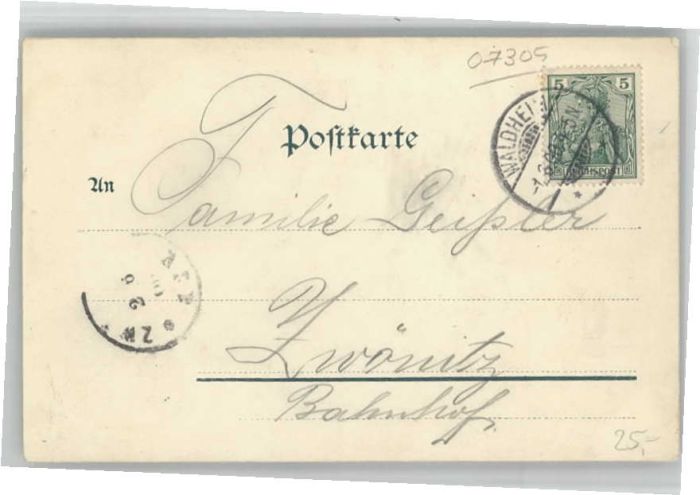 07305
5 5
REICHSPOST
WALDHEIM
Postkarte
An
Familie Geißler
Zwönitz
Bahnhof
25,-